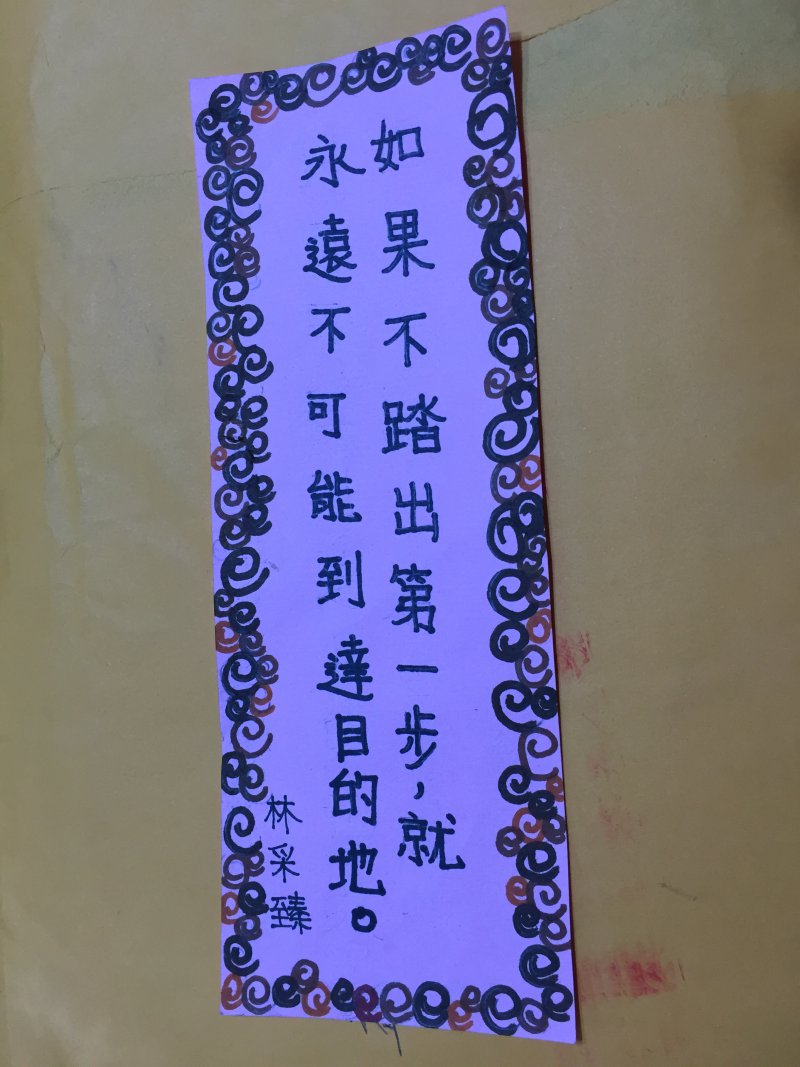 如果不踏出第一步，就
永遠不可能到達目的地。
林采臻